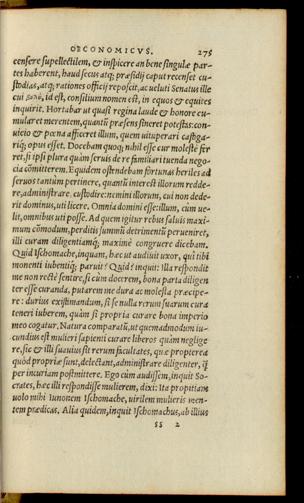 OECONOMICVS. 275
censere supellectilem, & inspicere an bene singulæ par-
tes haberent, haud secus atq; præsidij caput recenset cu-
stodias, atq; rationes officij reposcit, ac ueluti Senatus ille
cui βουλὴ, id est, consilium nomen est, in equos & equites
inquirit. Hortabar ut quasi regina laude & honore cu-
mular et merentem, quantū præsens sineret potestas: con-
uicio & pœna afficeret illum, quem uituperari castiga-
riq; opus esset. Docebam quoq; nihil esse cur moleste fer
ret, si ipsi plura quàm seruis de re familiari tuenda nego-
cia cōmitterem. Equidem ostendebam fortunas heriles ad
seruos tantùm pertinere, quantū interest illorum redde-
re, administrare, custodire: nemini illorum, cui non dede-
rit dominus, uti licere. Omnia domini esse: illum, cùm ue-
lit, omnibus uti posse. Ad quem igitur rebus saluis maxi-
mum cōmodum, perditis summū detrimentū perueniret,
illi curam diligentiamq; maximè congruere dicebam.
Quid Ischomache, inquam, hæc ut audiuit uxor, quî tibi
monenti iubentiq; paruit? Quid? inquit: Illa respondit
me non rectè sentire, si cùm docerem, bona parta diligen
ter esse curanda, putarem me dura ac molesta præcipe-
re: durius existimandum, si se nulla rerum suarum cura
teneri iuberem, quàm si propria curare bona imperio
meo cogatur. Natura comparatū, ut quemadmodum iu-
cundius est mulieri sapienti curare liberos quàm neglige
re, sic & illi suauius sit rerum facultates, quæ propterea
quòd propriæ sunt, delectant, administrare diligenter, q̃
per incuriam postmittere. Ego cùm audissem, inquit So-
crates, hæc illi respondisse mulierem, dixi: Ita propitiam
uolo mihi Iunonem Ischomache, uirilem mulieris men-
tem prædicas. Alia quidem, inquit Ischomachus, ab illius
ss 2